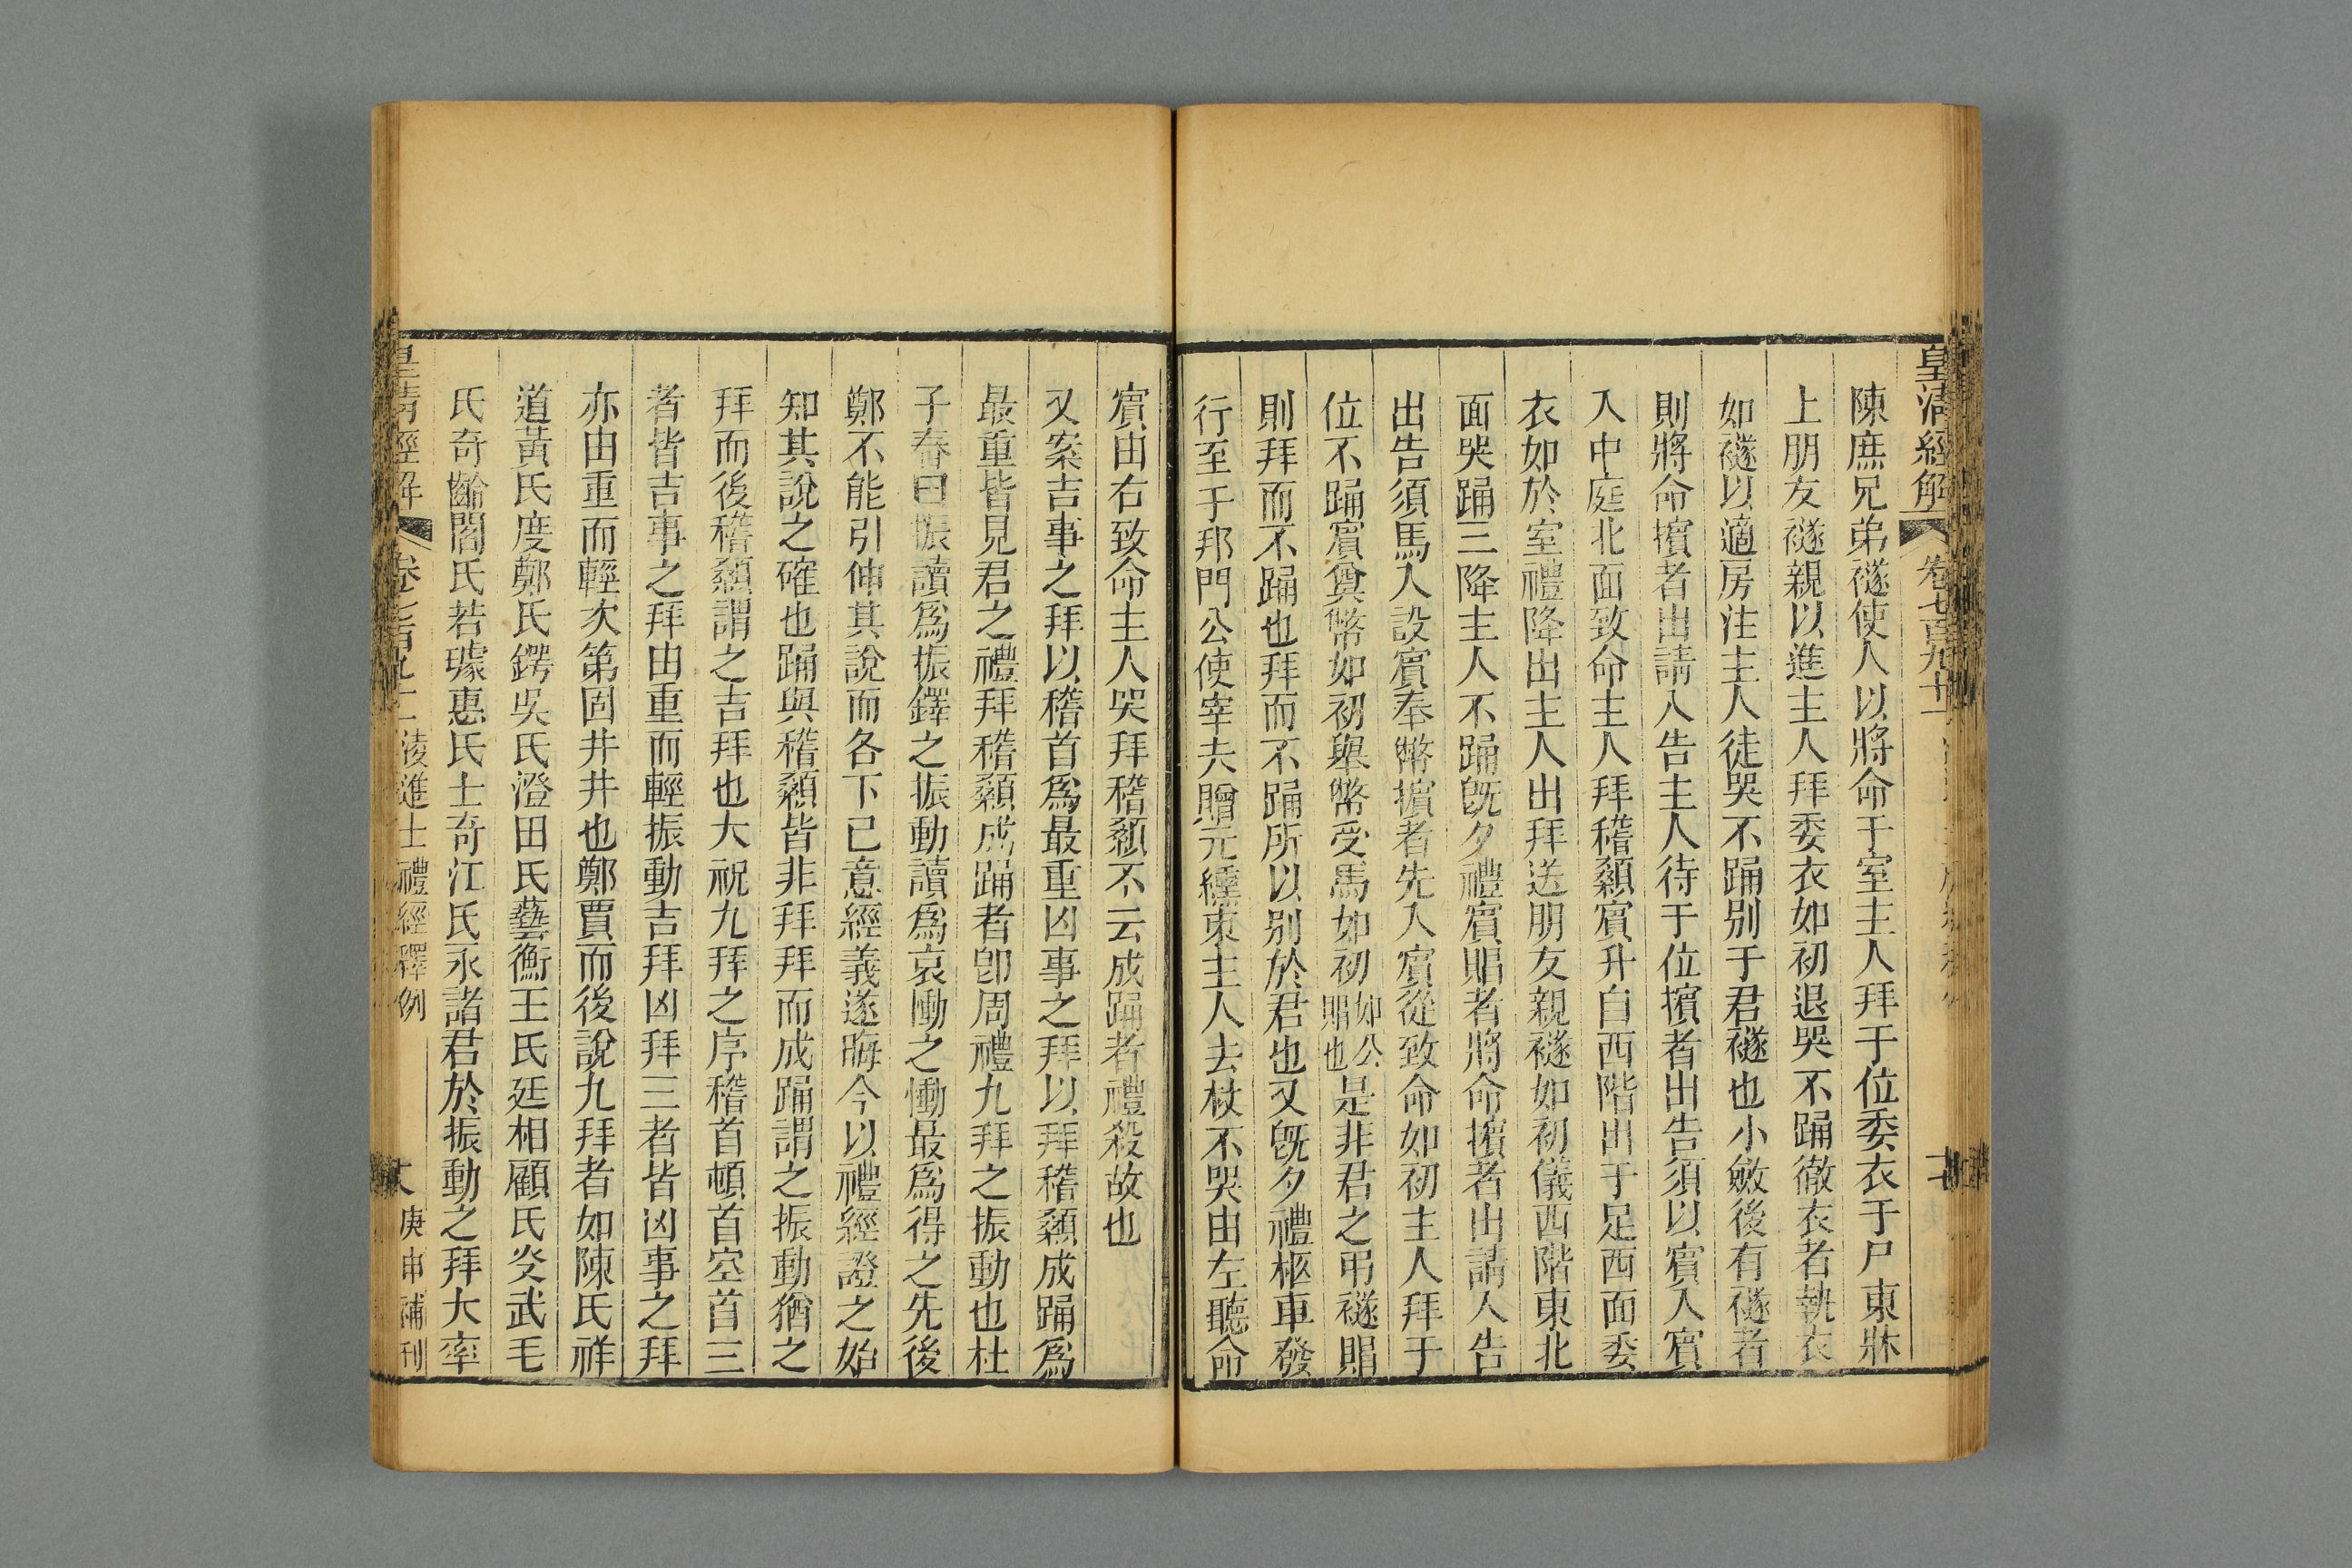 皇清經解 卷七百九十二
陳庶兄弟襚使人以將命于室主人拜于位委衣于尸東牀
上朋友襚親以進主人拜委衣如初退哭不踊徹衣者執衣
如襚以適房注主人徒哭不踊别于君襚也小斂後有襚者
則將命擯者出請入告主人待于位擯者出告須以賓入賓
入中庭北面致命主人拜稽顙賓升自西階出于足西面委
衣如於室禮降出主人出拜送朋友親襚如初儀西階東北
面哭踊三降主人不踊旣夕禮賓賵者將命擯者出請入告
出告須馬入設賓奉幣擯者先入賓從致命如初主人拜于
位不踊賓奠幣如初舉幣受馬如初如公賵也是非君之弔襚賵
則拜而不踊也拜而不踊所以别於君也又旣夕禮柩車發
行至于邦門公使宰夫贈元纁束主人去杖不哭由左聽命
賓由右致命主人哭拜稽顙不云成踊者禮殺故也
又案吉事之拜以稽首爲最重凶事之拜以拜稽顙成踊爲
最重皆見君之禮拜稽顙成踊者卽周禮九拜之振動也杜
子春曰振讀爲振鐸之振動讀爲哀慟之慟最爲得之先後
鄭不能引伸其說而各下已意經義遂晦今以禮經證之始
知其說之確也踊與稽顙皆非拜拜而成踊謂之振動猶之
拜而後稽顙謂之吉拜也大祝九拜之序稽首頓首空首三
者皆吉事之拜由重而輕振動吉拜凶拜三者皆凶事之拜
亦由重而輕次第固井井也鄭賈而後說九拜者如陳氏祥
道黃氏度鄭氏鍔吳氏澄田氏藝衡王氏廷相顧氏炎武毛
氏奇齡閻氏若璩惠氏士奇江氏永諸君於振動之拜大率
皇淸經解 卷七百九十二 淩進士禮經釋例 庚申補刊